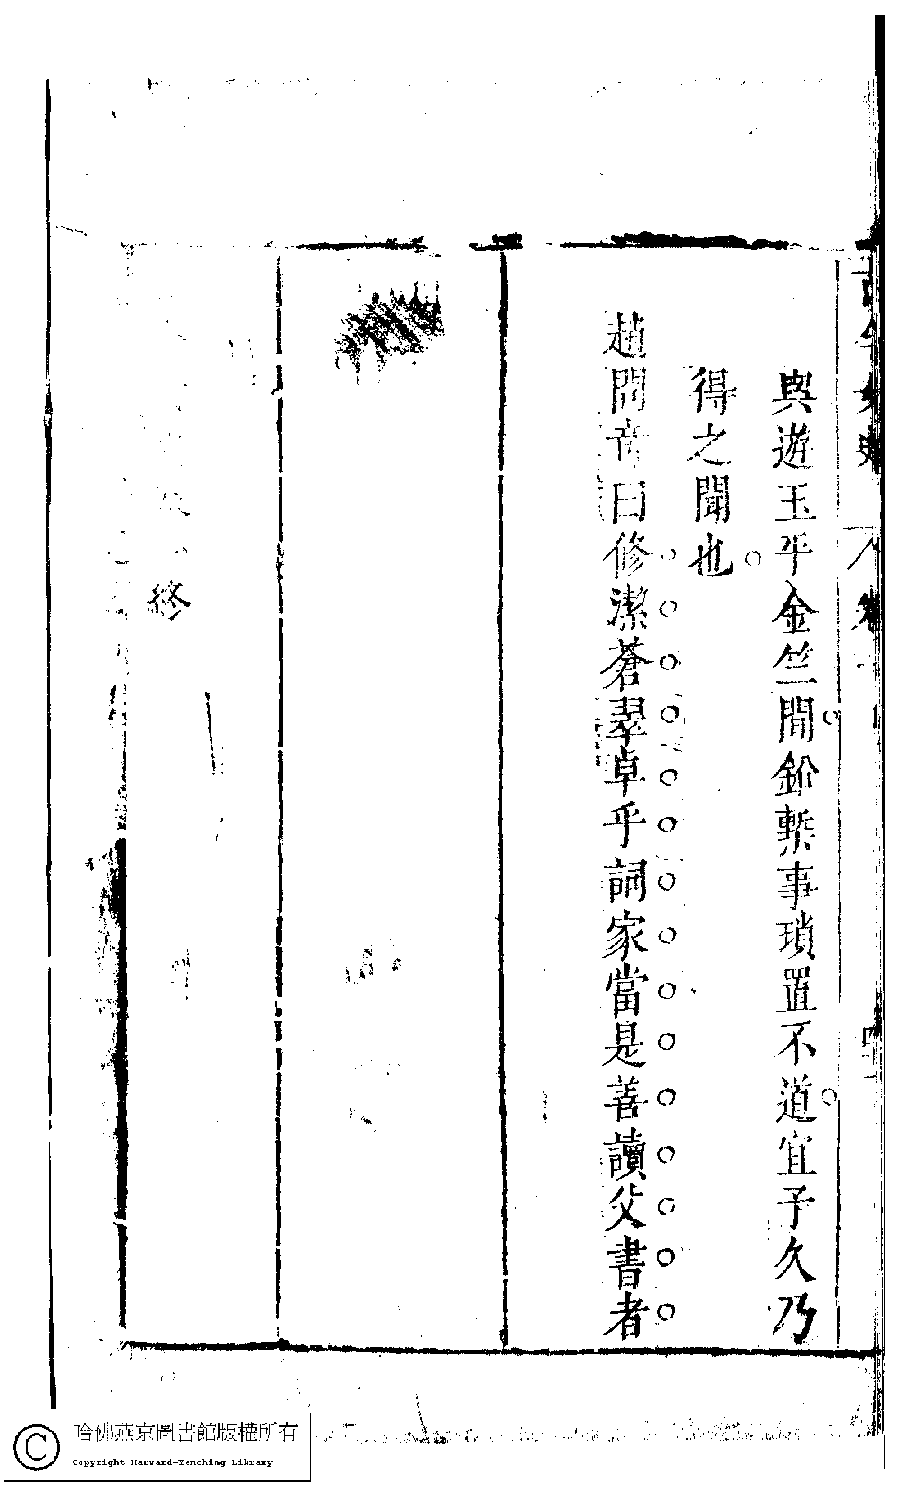 與遊玉乎金竺間鉛槧事瑣置不道宜予久乃
得之聞也
趙問奇曰修潔蒼翠卓乎詞家當是善讀父書者
終
哈佛燕京圖書館版權所有
Copyright Harvard-Yenching Library